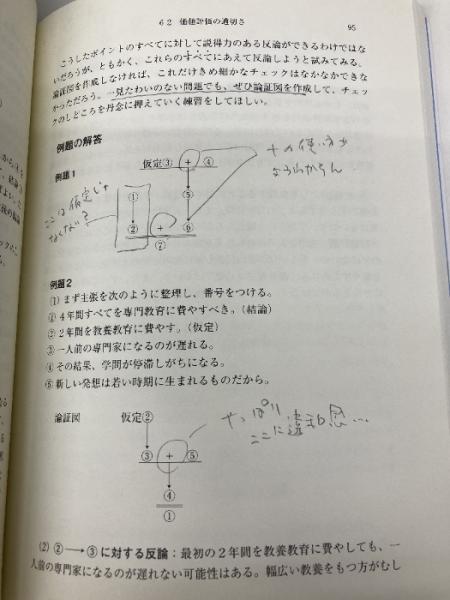 6·2 価値評価の適切さ 95
こうしたポイントのすべてに対して説得力のある反論ができるわけではな
いだろうが、ともかく、これらのすべてにあえて反論しようと試みてみる。
論証図を作成しなければ、これだけきめ細かなチェックはなかなかできな
かっただろう。一見たわいのない問題でも、ぜひ論証図を作成して、チェッ
クのしどころを丹念に押えていく練習をしてほしい。
例題の解答
例題1
仮定③ + ④
+の使い方が
ようわからん
① ⑤
ここは仮定じゃ
なくない?
② + ⑥
⑦
例題2
(1) まず主張を次のように整理し、番号をつける。
① 4年間すべてを専門教育に費やすべき。(結論)
② 2年間を教養教育に費やす。(仮定)
③ 一人前の専門家になるのが遅れる。
④ その結果、学問が停滞しがちになる。
⑤ 新しい発想は若い時期に生まれるものだから。
論証図 仮定②
やっぱり
ここに違和感…
③ + ⑤
④
①
(2) ②→③に対する反論:最初の2年間を教養教育に費やしても、一
人前の専門家になるのが遅れない可能性はある。幅広い教養をもつ方がむし